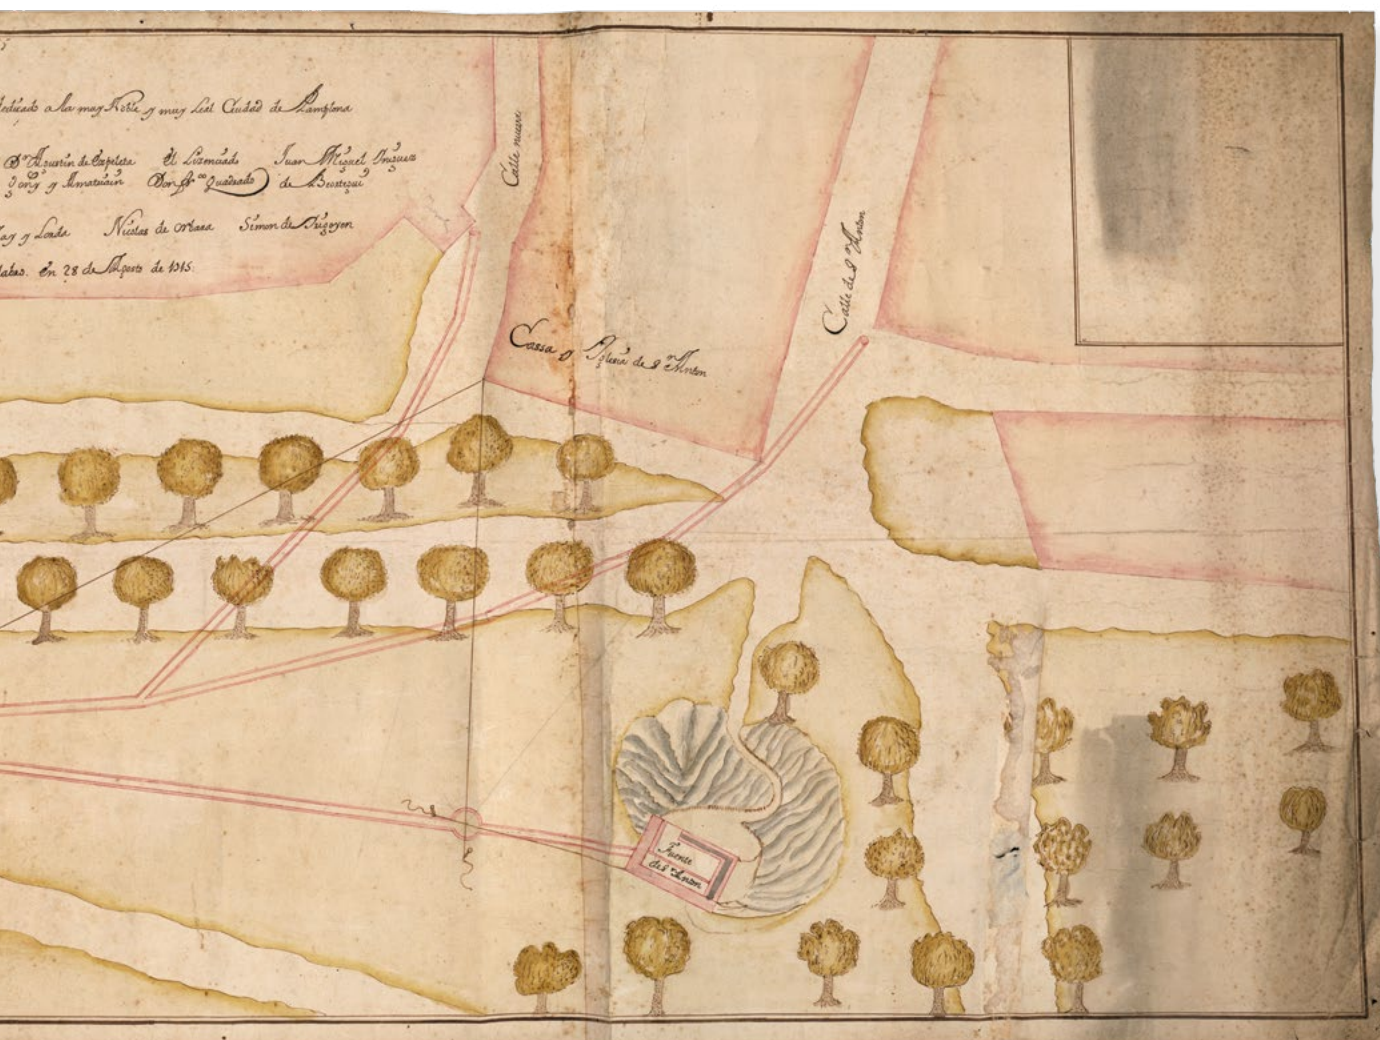 dedicado a la muy Noble y muy Leal Ciudad de Pamplona
Dⁿ Agustin de Ezpeleta El Lizenciado Juan Miguel
y Amatriain Don Frᶜᵒ Quadrado de Beostegui
y Lorda Nicolas de Simon de
en 28 de Agosto de
Calle nueva
Calle de Sⁿ Anton
Cassa y Iglesia de Sⁿ Anton
Fuente
de Sⁿ Anton